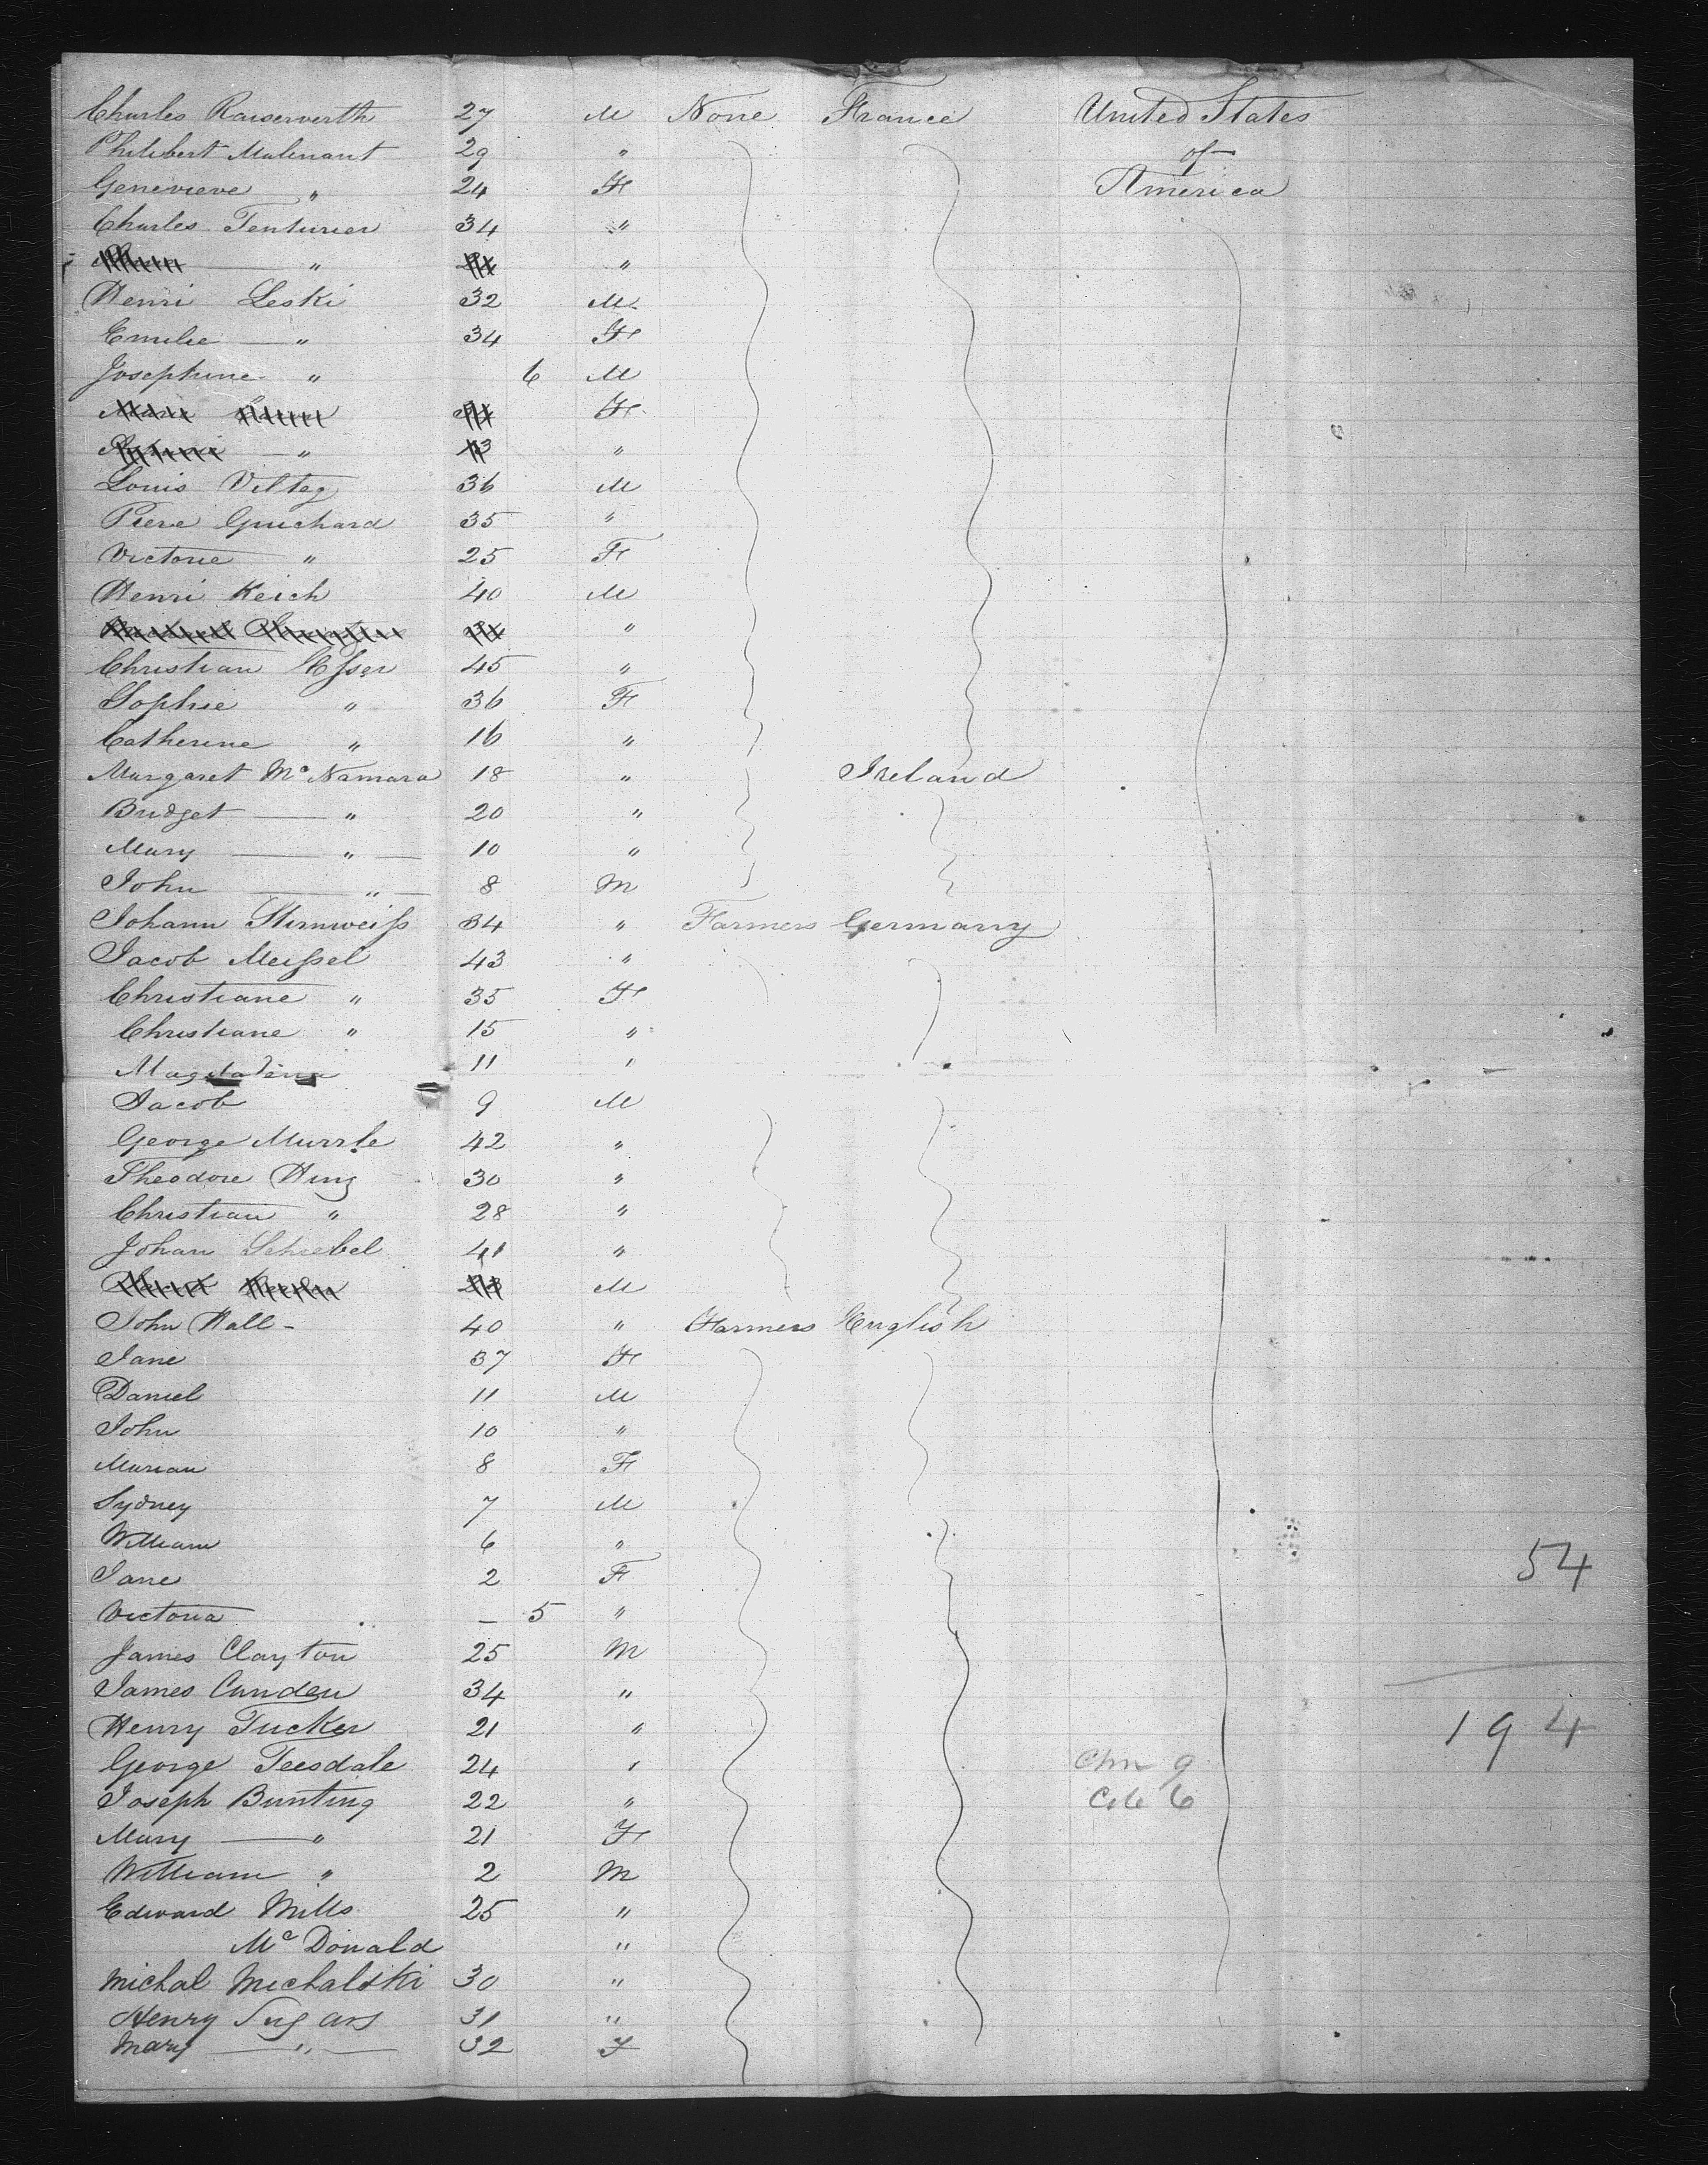 Charles Raiserverth 27 M None France United States
Philibert Malinant 29 " of
Genevieve " 24 F America
Charles Tenturier 34 "
" "
Henri Leski 32 M
Emilie — " 34 F
Josephine " 6 M
F
— " 13 "
Louis Vilteg 36 M
Piere Guichard 35 "
Victorie " 25 F
Henri Keich 40 M
"
Christian Esser 45 "
Sophie " 36 F
Catherine " 16 "
Margaret Mc Namara 18 " Ireland
Bridget — " 20 "
Mary — " — 10 "
John — " — 8 M
Johann Sternweiss 34 " Farmers Germany
Jacob Meissel 43 "
Christiane " 35 F
Christiane " 15 "
Magdalena 11 "
Jacob 9 M
George Murrle 42 "
Theodore Hinz 30 "
Christian " 28 "
Johan Schiebel 41 "
M
John Hall - 40 " Farmers English
Jane 37 F
Daniel 11 M
John 10 "
Marian 8 F
Sydney 7 M
William 6 "
Jane 2 F 54
Victoria — 5 "
James Clayton 25 M
James Cunden 34 "
Henry Tucker 21 " 194
George Teesdale 24 " Chn 9
Joseph Bunting 22 " 6
Mary — " 21 F
William " 2 M
Edward Mills 25 "
Mc Donald "
Michal Michalski 30 "
Henry Sugars 31 "
Mary — " — 32 F